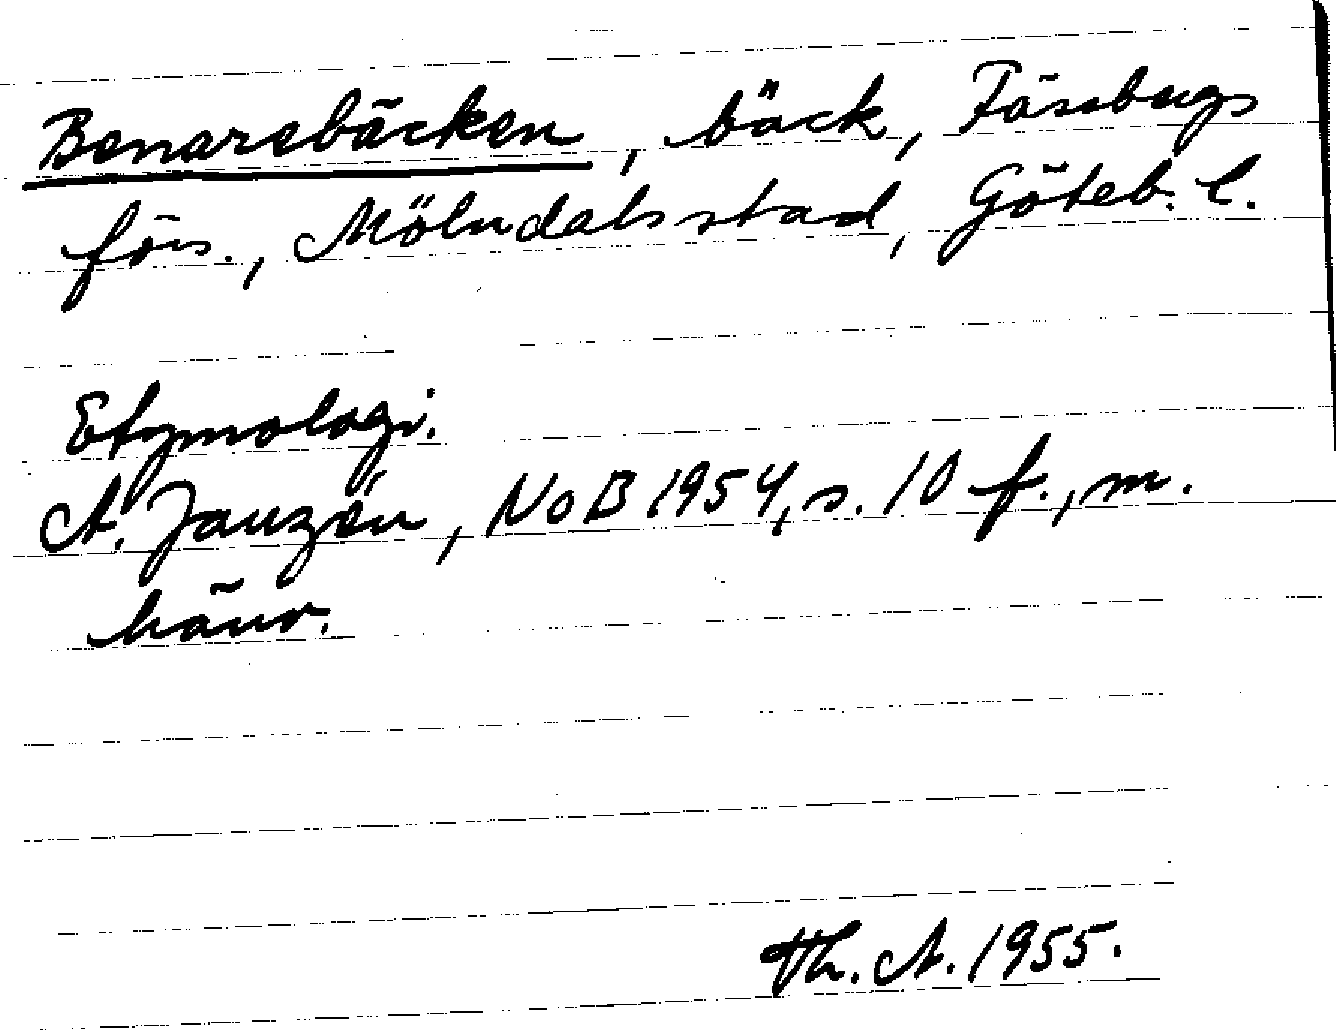 Benarebäcken, bäck, Fässbergs
förs., Mölndals stad, Göteb. l.
Etymologi.
A. Janzén, NoB 1954, s. 10 f., m.
hänv.
Th. A. 1955.